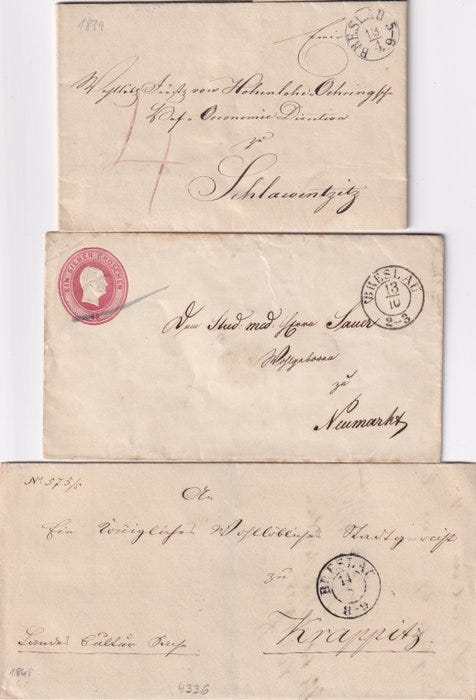 1839
BRESLAU 5-6
13
4
Wohllöbl. Fürstl. von Hohenlohe-Oehringsch
Oeconomie Direction
4
zu
Schlawentzitz
EIN SILBER GROSCHEN
BRESLAU
13
10
2-3
Dem Stud. med. Herrn Sauer
Wohlgeboren
zu
Neumarkt
No 575/5
An
Ein Königliches Wohllöbliches Stadtgericht
zu
BRESLAU
14
8-9
Krappitz.
Landes Cultur Sache.
1848
4336